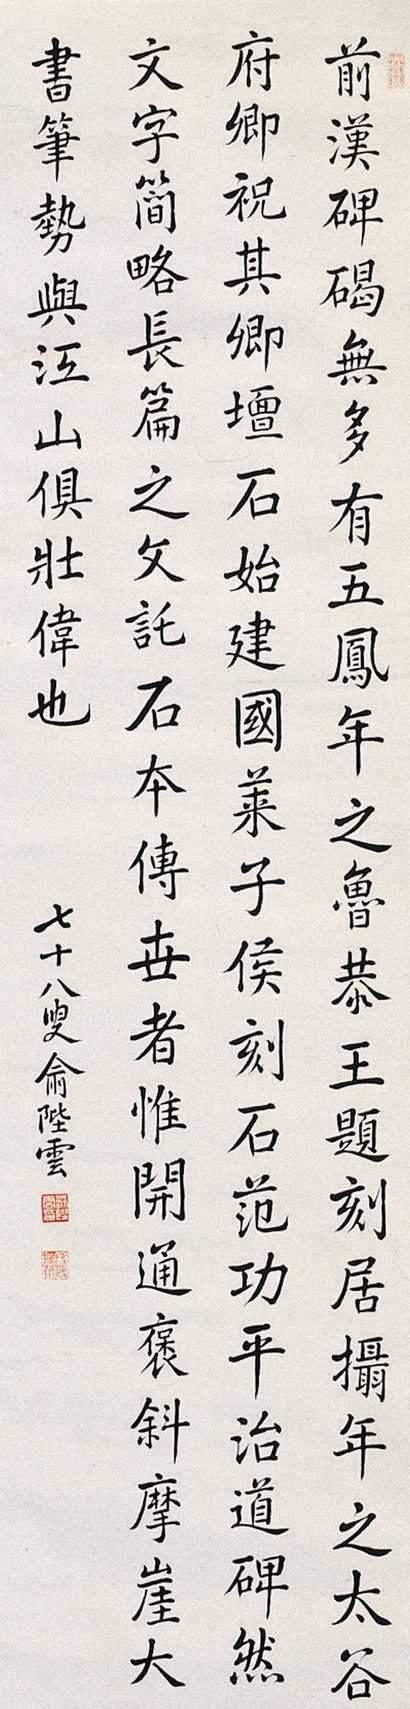 前漢碑碣無多有五鳳年之魯恭王題刻居攝年之太谷
府卿祝其卿壇石始建國萊子侯刻石范功平治道碑然
文字簡略長篇之文託石本傳世者惟開通褒斜摩崖大
書筆勢與江山俱壯偉也
七十八叟俞陛雲